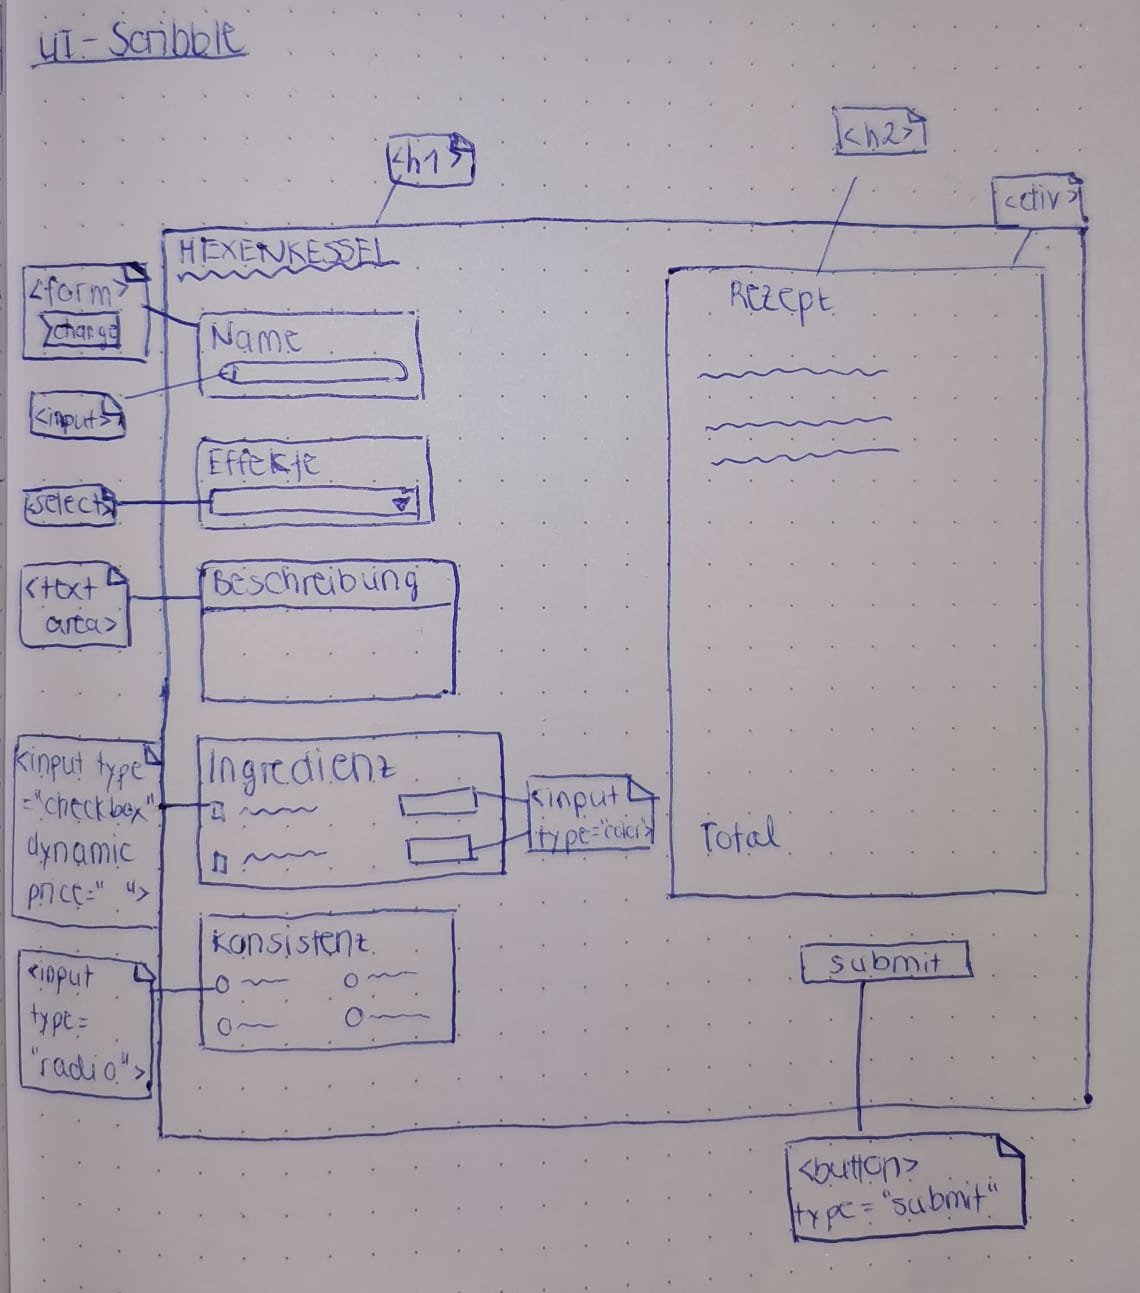 UI-Scribble
<h1>
<h2>
<div>
HEXENKESSEL
<form>
change
Name
<input>
Rezept
Effekte
<select>
<text
area>
Beschreibung
<input type
="checkbox"
dynamic
price=" ">
Ingredienz
<input
type="color">
Total
Konsistenz
<input
type=
"radio">
submit
<button>
type="submit"